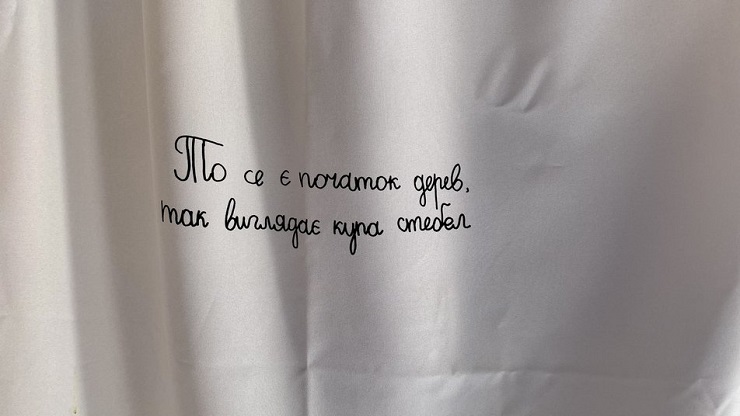 То се є початок дерев,
так виглядає купа стебел